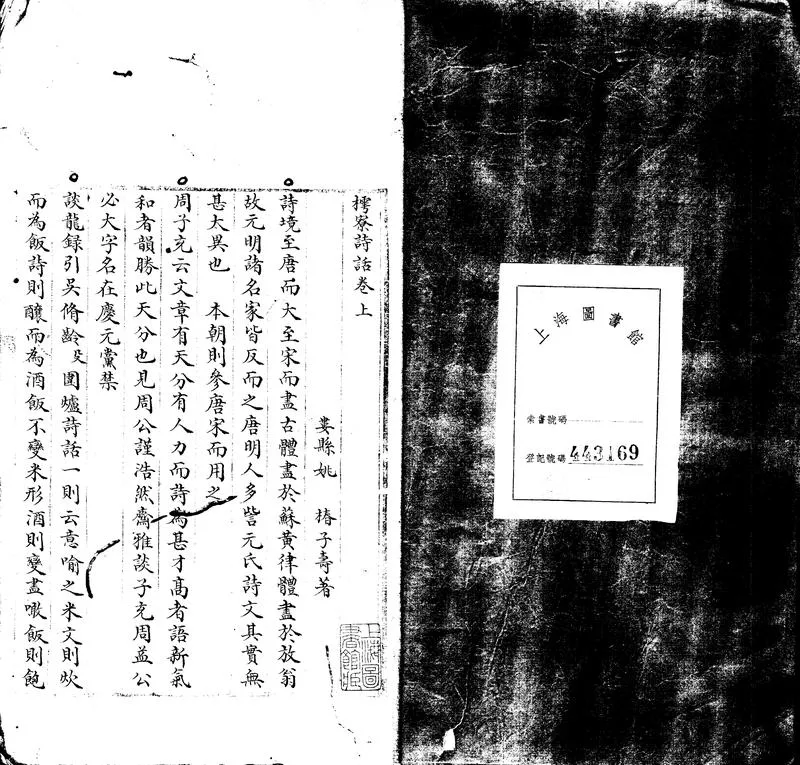 上海圖書館
索書號碼
登記號碼 443169
樗寮詩話卷上
婁縣姚 椿子壽著
詩境至唐而大至宋而盡古體盡於蘇黃律體盡於放翁
故元明諸名家皆反而之唐明人多訾元氏詩文其實無
甚太異也 本朝則參唐宋而用之
周子充云文章有天分有人力而詩為甚才高者語新氣
和者韻勝此天分也見周公謹浩然齋雅談子充周益公
必大字名在慶元黨禁
談龍錄引吳脩齡㕛圍爐詩話一則云意喻之米文則炊
而為飯詩則釀而為酒飯不變米形酒則變盡噉飯則飽
上海圖書館藏